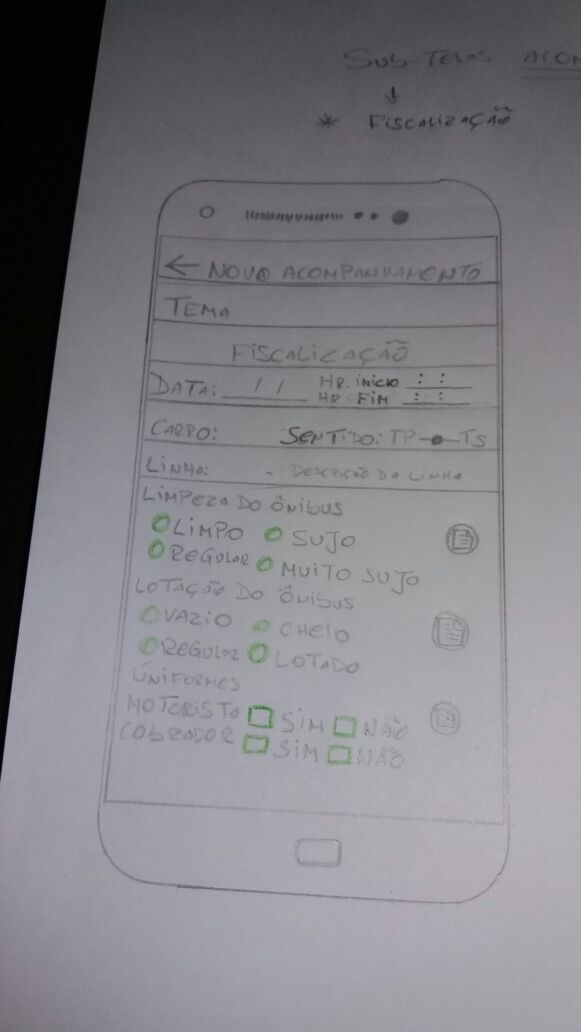 SUB-TELAS ACOM
* FISCALIZAÇÃO
← NOVO ACOMPANHAMENTO
TEMA
FISCALIZAÇÃO
DATA: / / HR. INICIO : :
HR FIM : :
CARRO: SENTIDO: TP TS
LINHA: - DESCRIÇÃO DA LINHA
LIMPEZA DO ÔNIBUS
LIMPO SUJO
REGULAR MUITO SUJO
LOTAÇÃO DO ÔNIBUS
VAZIO CHEIO
REGULAR LOTADO
UNIFORMES
MOTORISTA SIM NÃO
COBRADOR SIM NÃO